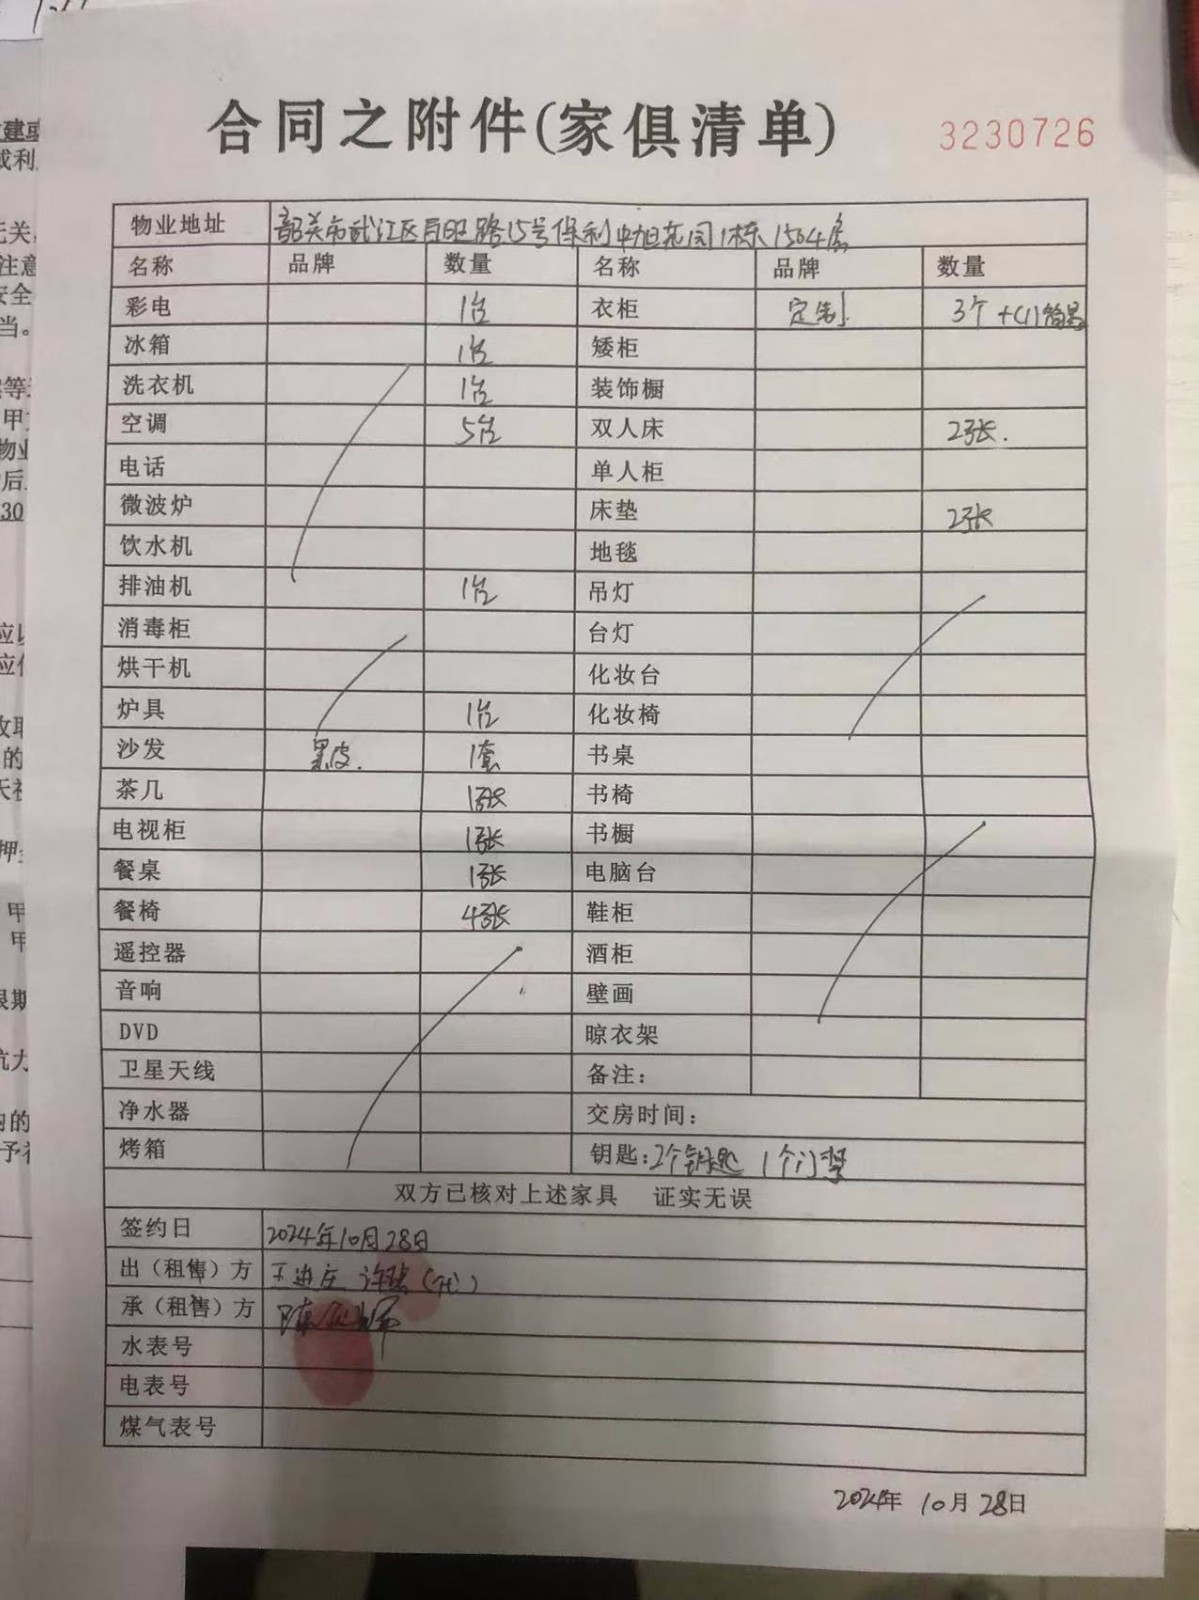 合同之附件(家俱清单)
3230726
物业地址 韶关市武江区百旺路15号保利中旭花园1栋1504房
名称 品牌 数量 名称 品牌 数量
彩电 1台 衣柜 定制 3个+(1)
冰箱 1台 矮柜
洗衣机 1台 装饰橱
空调 5台 双人床 2张.
电话 单人柜
微波炉 床垫 2张
饮水机 地毯
排油机 1台 吊灯
消毒柜 台灯
烘干机 化妆台
炉具 1台 化妆椅
沙发 黑皮. 1套 书桌
茶几 1张 书椅
电视柜 1张 书橱
餐桌 1张 电脑台
餐椅 4张 鞋柜
遥控器 酒柜
音响 壁画
DVD 晾衣架
卫星天线 备注:
净水器 交房时间:
烤箱 钥匙:2个钥匙 1个门禁
双方已核对上述家具 证实无误
签约日 2024年10月28日
出(租售)方 (代)
承(租售)方 陈
水表号
电表号
煤气表号
2024年 10月 28日
建或
或利
无关
注意
安全
当。
等
甲
物业
后
30
应以
应
收取
的
押
甲
甲
限期
抗力
内的
予